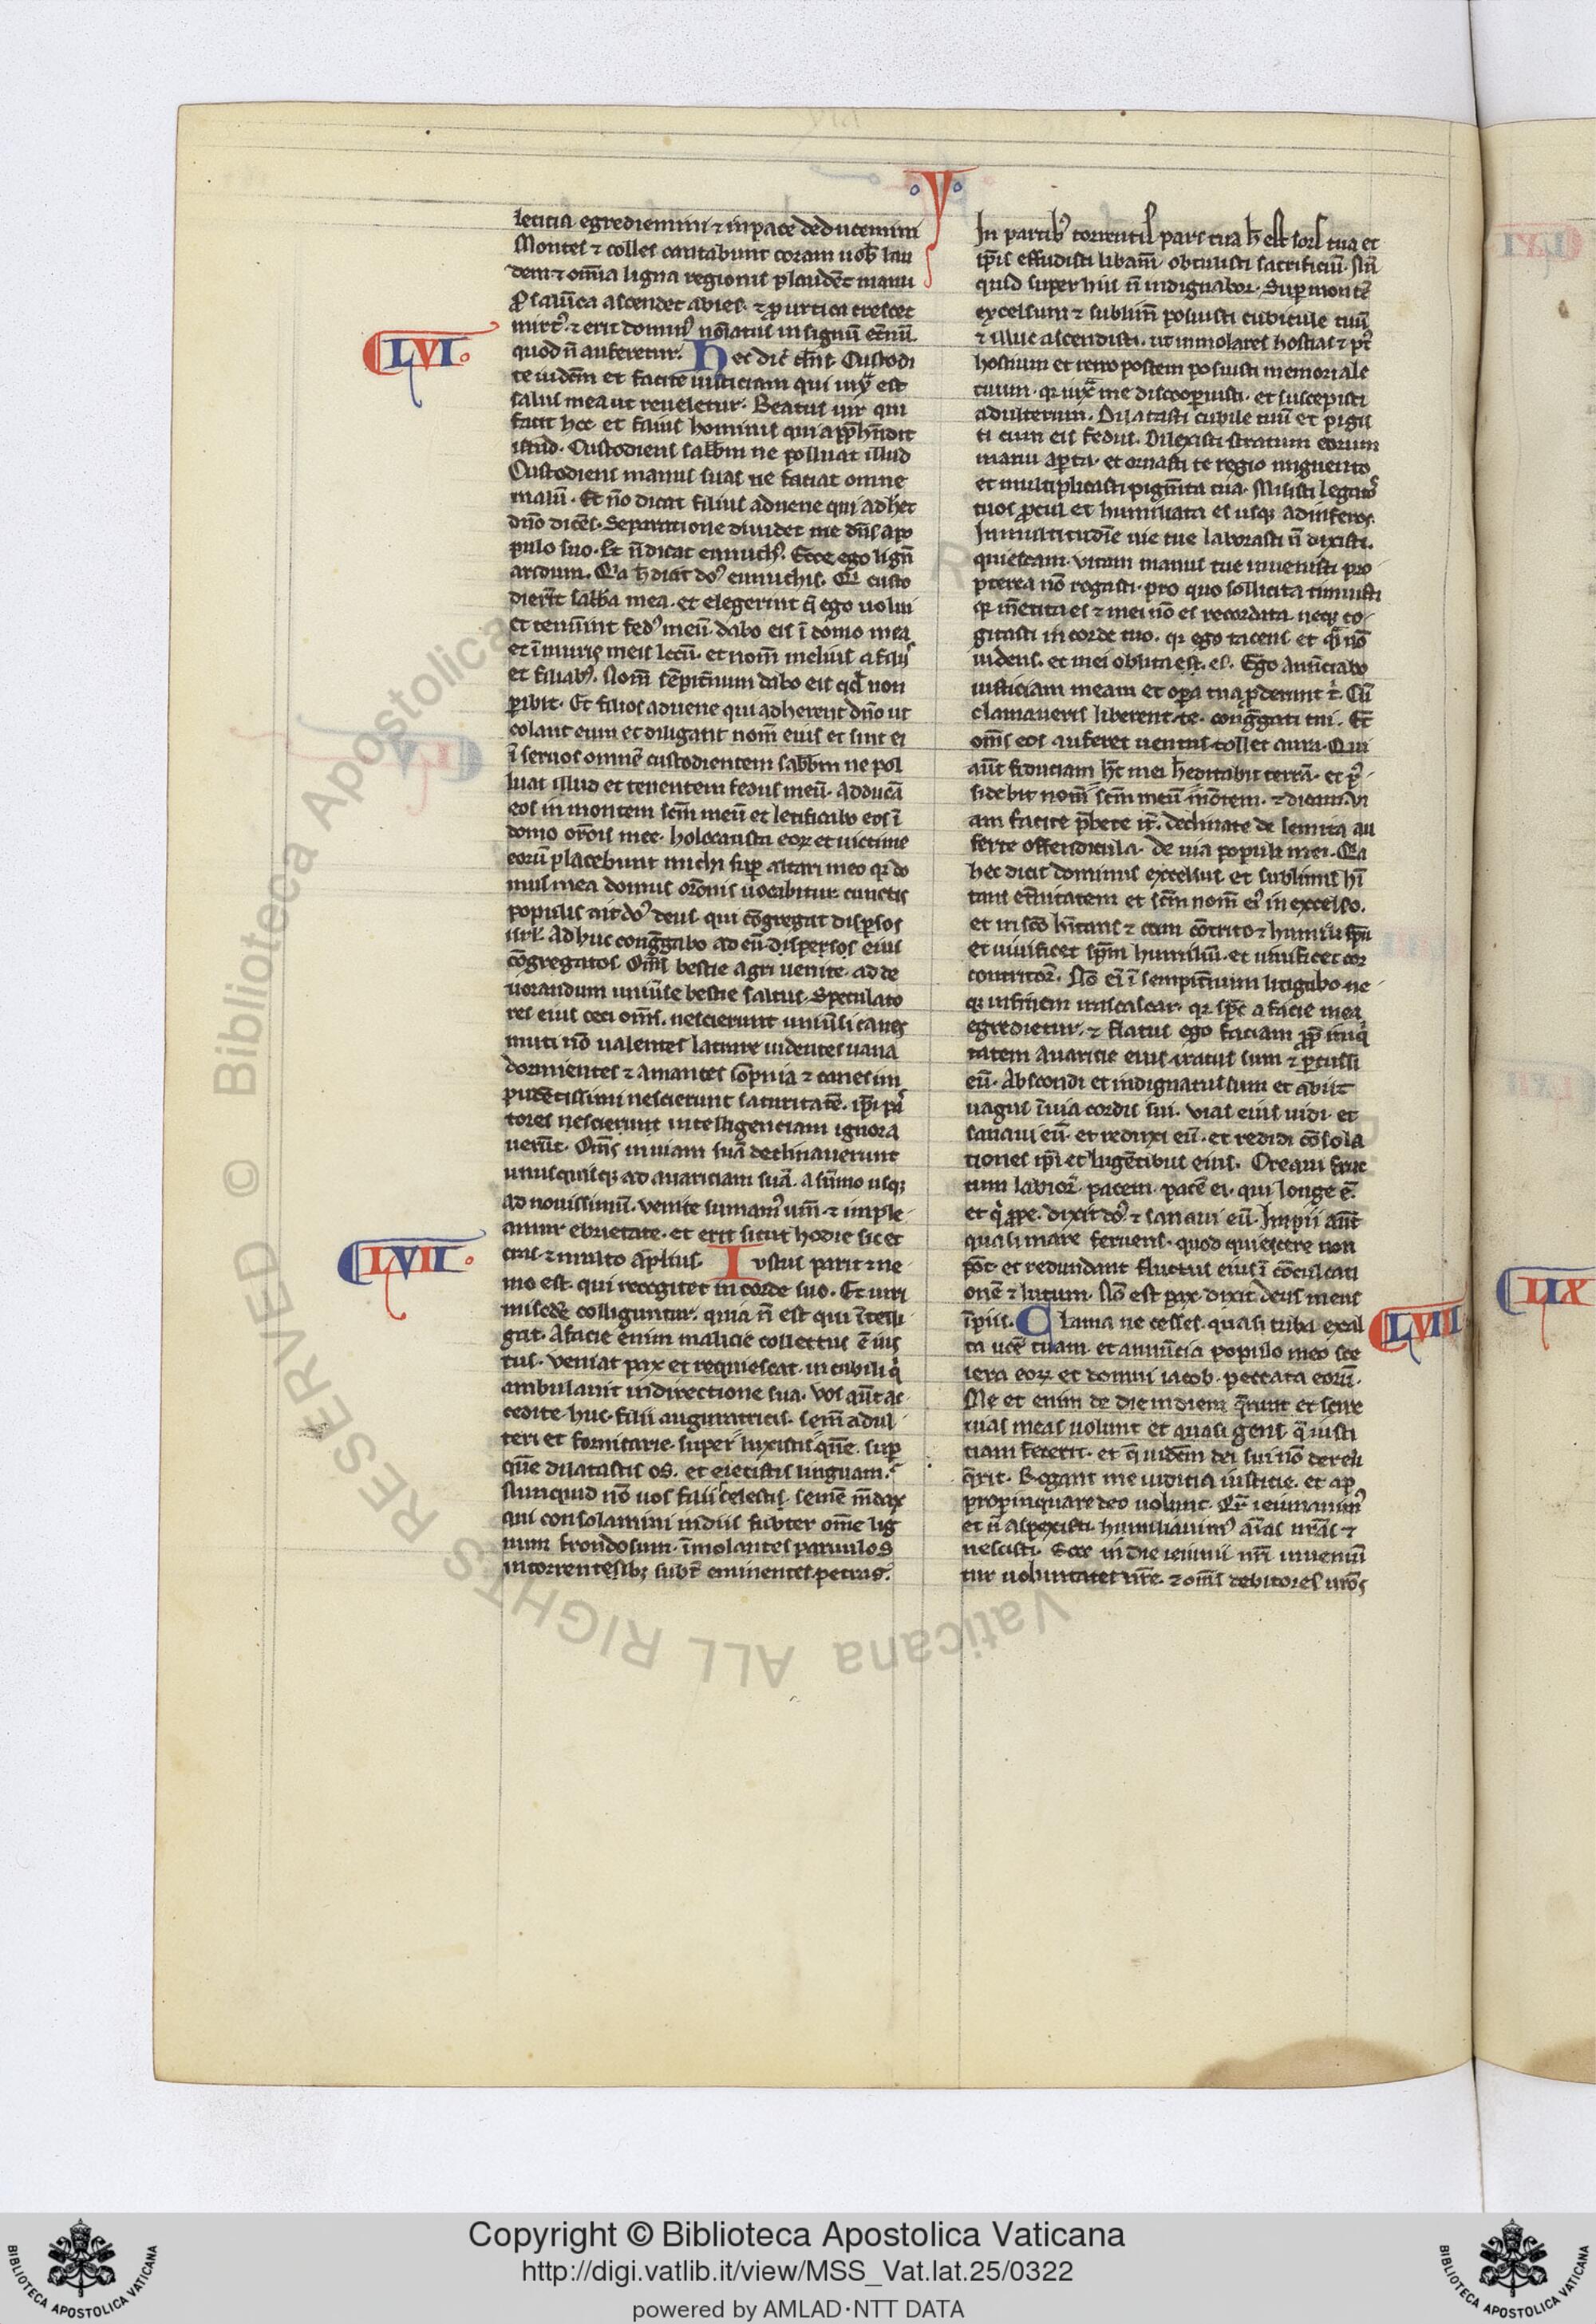 V
letitia egrediemini ⁊ in pace deducemini
Montes ⁊ colles cantabunt coram uob̄ lau
dem ⁊ om̄ia ligna regionis plaudēt manu
ꝓ saliūca ascendet abies. ⁊ ꝓ urtica crescet
mirtꝰ. ⁊ erit domin̄ nōiatus in signū et̄nū
LVI.
quod n̄ auferetur. Hec dic̄ dn̄s. Custodi
te iudiciū et facite iusticiam qui iux̄ est
salus mea ut reueletur. Beatus uir qui
facit hec et filius hominis qui app̄hn̄dit
istud. Custodiens sabb̄m ne polluat illud
Custodiens manus suas ne faciat omne
malū. Et nō dicat filius aduene qui adhet
dn̄o dicēs. Separatione diuidet me dn̄s a po
pulo suo. Et n̄ dicat eunuchꝰ. Ecce ego lign̄
aridum. Q̄a h̄ dicit dōs eunuchis. Qui custo
dierīt sabb̄a mea. et elegerint q̄ ego uolui
et tenuīnt fedꝰ meū. dabo eis ī domo mea
et ī muris meis locū. et nom̄ melius a filiis
et filiabꝰ. Nom̄ sēpit̄num dabo eis qd̄ non
ꝑibit. Et filios aduene qui adherent dn̄o ut
colant eum et diligant nom̄ eius et sint ei
ī seruos omnē custodientem sabb̄m ne pol
luat illud et tenentem fedus meū. adducā
eos in montem scm̄ meū et letificabo eos ī
domo or̄ois mee. holocausta eoꝝ et uictime
eorū placebunt michi suꝑ altari meo qꝛ do
mus mea domus or̄onis uocabitur cunctis
populis ait dōs deus qui cōgregat disꝑsos
isrl̄. Ad huc cong̅gabo ad eū dispersos eius
cōgregatos. Om̄s bestie agri uenite. ad de
uorandum uniuīse bestie saltus. Speculato
res eius ceci om̄s. nescierunt uniuīsi canes
muti nō ualentes latrare uidentes uana
dormientes ⁊ amantes sōpnia ⁊ canes im
pudētissimi nescierunt saturitatē. ip̄i pas
tores nescierunt intelligenciam ignora
uerūt. Om̄s in uiam suā declinauerunt
unusquisqꝫ ad auariciam suā. a sūmo usqꝫ
ad nouissimū. venite sumamꝰ uin̄ ⁊ imple
amur ebrietate. et erit sicut hodie sic et
LVII.
cras. ⁊ multo ap̄lius. Iustus parit ⁊ ne
mo est. qui recogitet in corde suo. Et uiri
misc̄de colliguntur. quia n̄ est qui ītelli
gat. A facie enim malicie collectus ē ius
tus. Veniat pax et requiescat in cubili qͥ
ambulauit in directione sua. Vos aūt ac
cedite huc filii auguratricis. sem̄ adul
teri et fornicarie. super luxistis que. suꝑ
que dilatastis os. et eiecistis linguam.
Nunquid nō uos filii scelesti. semē m̄dax
qui consolamini in diis subter om̄e lig
num frondosum. īmolantes paruulos
in torrentesibꝫ subt̄ eminentes petras.
In partibꝰ torrentis pars tua h̄ est sors tua et
ip̄is effudisti libam̄. obtulisti sacrificiū. Nū
quid super hiis n̄ indignabor. Suꝑ montē
excelsum ⁊ sublim̄ posuisti cubicule tuū
⁊ illuc ascendisti. ut inmolares hostias ⁊ pꝰt
hostium et retro postem posuisti memoriale
tuum. qꝛ iux̄ me discooperuisti. et suscepisti
adulterum. Dilatasti cubile tuū et pigis
ti cum eis fedus. Dilexisti stratum eorum
manu aꝑta. et ornasti te regio unguento
et multiplicasti pigm̄ta tua. Misisti legatos
tuos ꝓcul et humiliata es usqꝫ ad inferos.
In multitudīe uie tue laborasti n̄ dixisti.
quiescam. vitam manus tue inuenisti pro
pterea nō rogasti. pro quo sollicita timuisti
qꝛ m̄tita es ⁊ mei nō es recordata. neqꝫ co
gitasti in corde tuo. qꝛ ego tacens et q̄i nō
uidens. et mei oblita est. es. Ego anūciabo
iusticiam meam et oꝑa tua ꝓderunt t̄. Cū
clamaueris liberent te. cong̅gati tui. Et
om̄s eos auferet uentus tollet aura. Qui
aūt fiduciam h̄t mei h̄editabit terrā. et pos
sidebit nom̄ scm̄ meū mōtem. ⁊ dicam vi
am facite p̄bete it̄. declinate de semita au
ferte offendicula. de uia populi mei. Q̄a
hec dicit dominus excelsus et sublimis hī
tans et̄nitatem et scm̄ nom̄ eiꝰ in excelso.
et in sc̄o hītans ⁊ cum cōtrito ⁊ humili sp̄u
et uiuificet sp̄m humiliū. et uiuificet cor
contritoꝝ. Nō ei ī sempit̄num litigabo ne
qꝫ in finem irascar. qꝛ sp̄s a facie mea
egredietur. ⁊ flatus ego faciam ꝓp̄ iniqͥ
tatem auaricie eius iratus sum ⁊ ꝑcussi
eū. Abscondi et indignatus sum et abiit
uagus ī uia cordis sui. vias eius uidi. et
sanaui eū. et reduxi eū. et redidi cōsola
tiones ip̄i et lugētibus eius. Creaui fruc
tum labioꝝ. pacem. pacē ei. qui longe ē.
et qͥ ꝓpe. dixit dōs. ⁊ sanaui eū. Impii aūt
quasi mare feruens. quod quiescere non
pōt et redundant fluctus eius ī cōculcati
onē ⁊ lutum. Nō est pax dixit deus meus
LVIII
īpiis. Clama ne cesses. quasi tuba exal
ta uocē tuam. et annūcia populo meo sce
lera eoꝝ et domui iacob. peccata eorū.
Me et enim de die in diem q̄runt et scire
uias meas uolunt et quasi gens. q̄ iusti
ciam fecerit. et q̄ iudiciū dei sui nō dereli
q̄rit. Rogant me iudicia iusticie. et ap
propinquare deo uolunt. Qr̄ ieiunauimꝰ
et n̄ aspexisti. humiliauimꝰ aīas nr̄as ⁊
nescisti. Ecce in die ieiunii nr̄i inueniū
tur uoluntates ur̄e. ⁊ om̄s debitores ur̄os
LIX
© Biblioteca Apostolica Vaticana ALL RIGHTS RESERVED
Copyright © Biblioteca Apostolica Vaticana
http://digi.vatlib.it/view/MSS_Vat.lat.25/0322
powered by AMLAD·NTT DATA
BIBLIOTECA APOSTOLICA VATICANA
BIBLIOTECA APOSTOLICA VATICANA